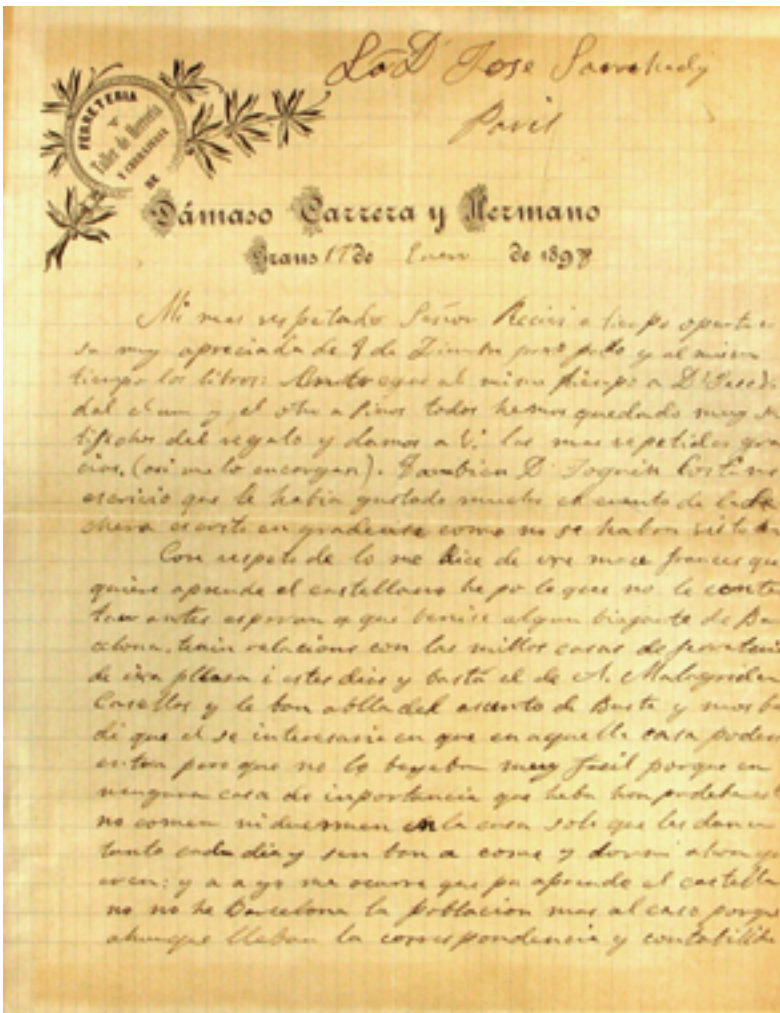 Sr D. Jose Saroihandy
Paris
FERRETERIA
Y
Taller de Herreria
Y CERRAJERIA
DE
Dámaso Carrera y Hermano
Graus 17 de Enero de 1898
Mi mas respetado Señor Recivi a tiempo oportuno
su muy apreciada de 9 de y al mismo
tiempo los libros: Entregue al mismo tiempo a D.
dal el uno y el otro a Pinos todos hemos quedado muy sa
tisfechos del regalo y damos a V. las mas repetidas gra
cias. (asi me lo encargan). Tambien D. Joaquin Costa me
escrivio que le habia gustado mucho el cuento de
escrito en gradense como no se habia visto
Con respeto de lo me dice de un moce frances que
quiere aprende el castellano he po le que no le conte
tau antes esperam a que benise algun biagante de Bar
celona. tenin relacions con las millos casas de ferreteria
de ixa pllasa i estes dies y bastá el de A. Malagrida
Casellas y le ban abllá del asunto de Busté y mos ba
di que el se interesaria en que en aquella casa podese
entra pero que no lo beyeba muy facil porque en
nenguna casa de importancia que heba
no comen ni duermen en la casa sole que les dan
tanto cada dia y sen ban a come y dormi
y a yo me ocurre que pa aprende el castella
no no he Barcelona la poblacion mas al caso porque
ahunque lleban la correspondencia y contabilida